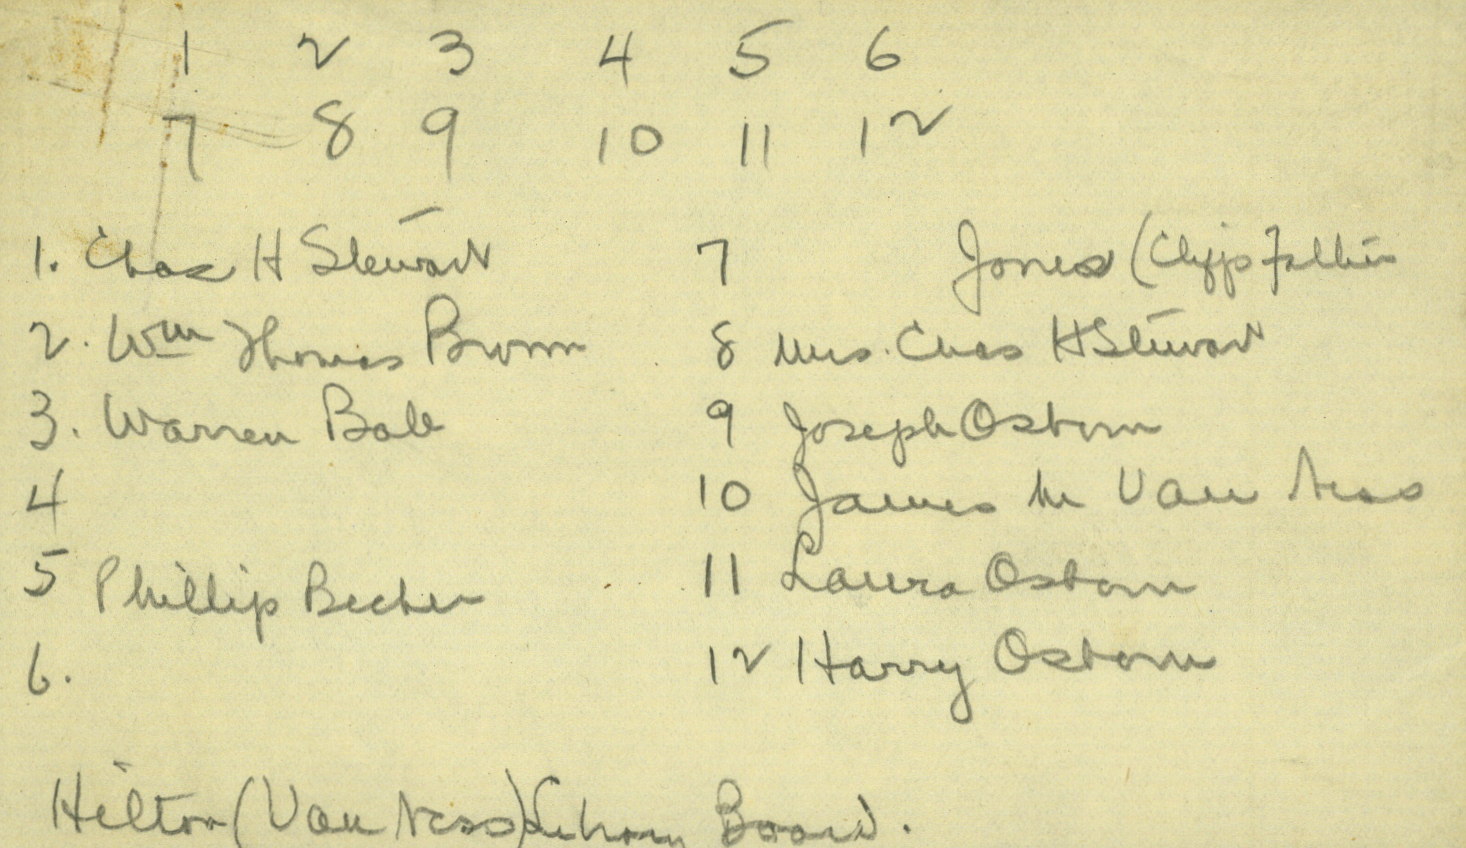 1 2 3 4 5 6
7 8 9 10 11 12
1. Chas H Stewart
2. Wm Thomas Brown
3. Warren Ball
4
5 Phillip Becker
6.
7 Jones (Cliffs Father
8 Mrs. Chas H Stewart
9 Joseph Osborn
10 James M Van Ness
11 Laura Osborn
12 Harry Osborn
Hilton (Van Ness) School Board.